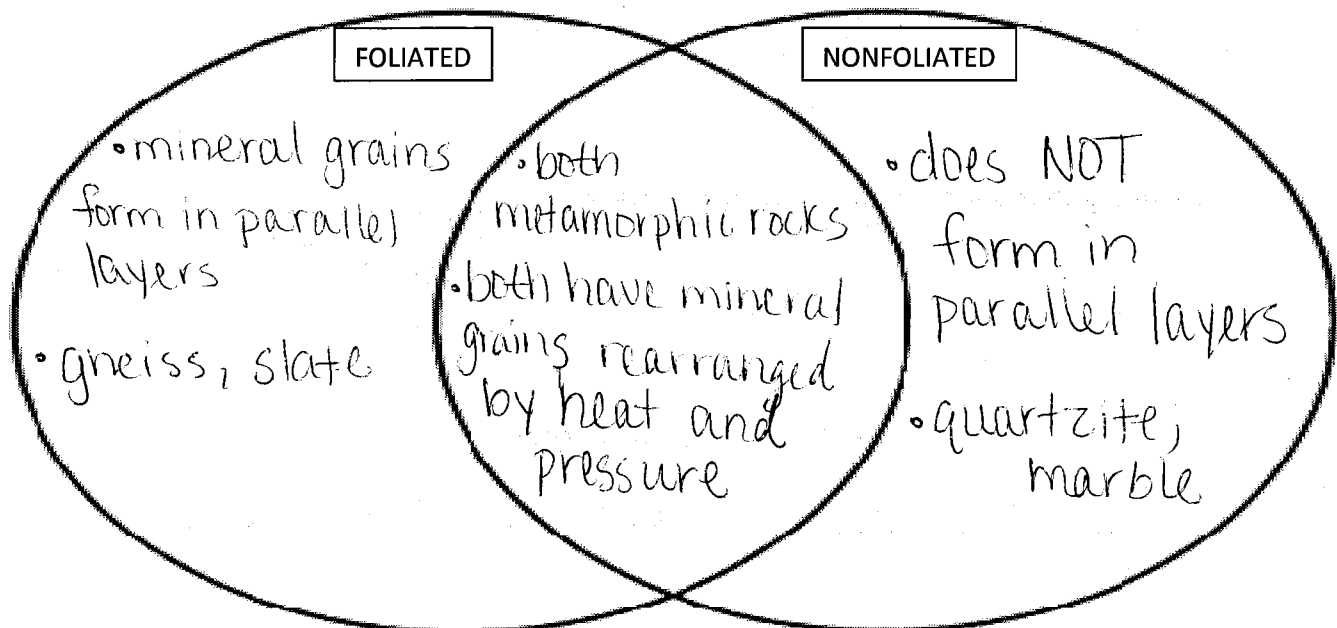 FOLIATED
• mineral grains
form in parallel
layers
• gneiss, slate
• both
metamorphic rocks
• both have mineral
grains rearranged
by heat and
pressure
NONFOLIATED
• does NOT
form in
parallel layers
• quartzite,
marble